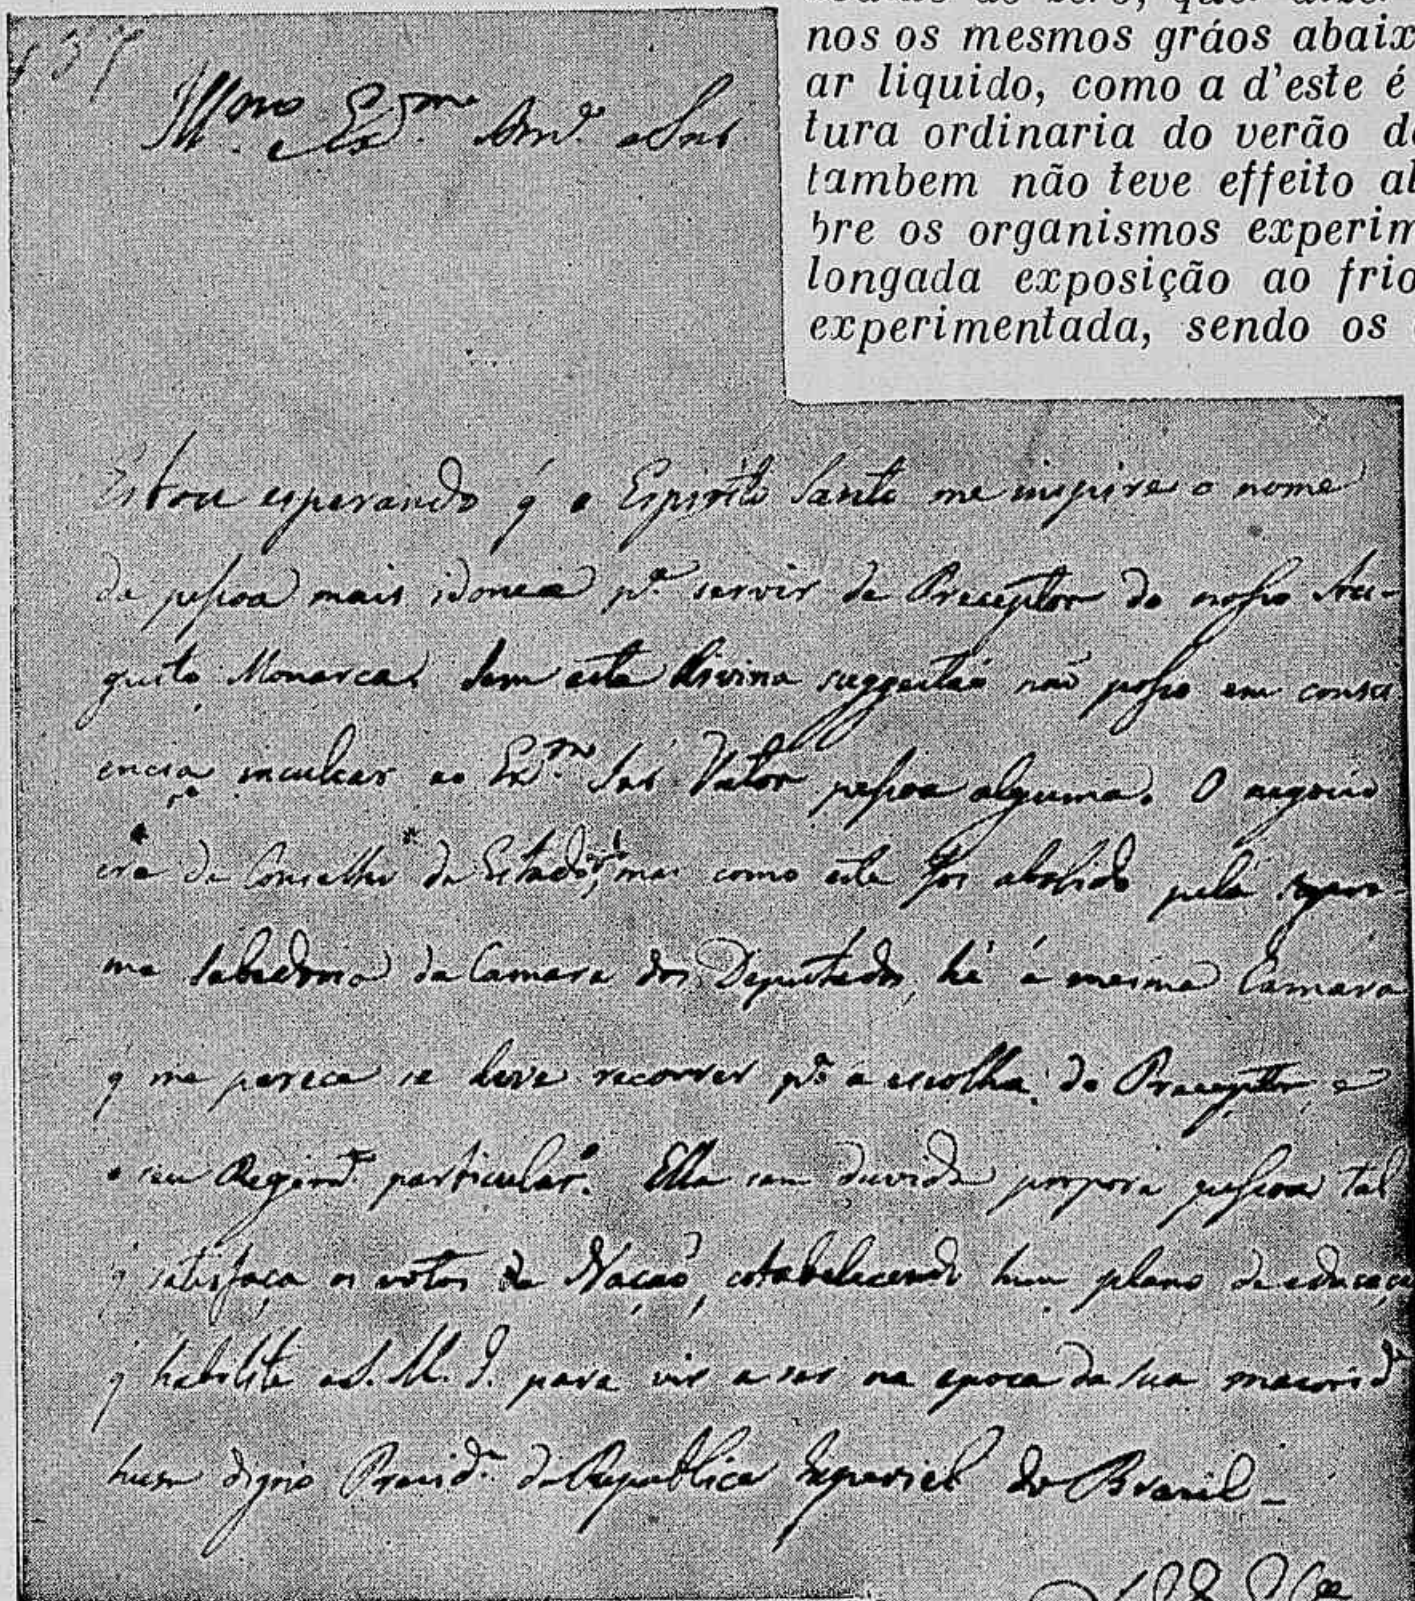 nos os mesmos gráos abaix
ar liquido, como a d'este é
tura ordinaria do verão d
tambem não teve effeito al
bre os organismos experim
longada exposição ao frio
experimentada, sendo os
Illmo. e Exmo. Amo. e Snr.
Estou esperando q̃ o Espirito Santo me inspire o nome
da pessoa mais idonea pa. servir de Preceptor do nosso Au-
gusto Monarca. Sem esta divina suggestão não posso em consci-
encia inculcar ao Exmo. Snr. Tutor pessoa alguma. O negocio
era do Conselho de Estado; mas como este foi abolido pela
sabedoria da Camara dos Deputados, hé á mesma Camara
q̃ me parece se deve recorrer pa. a escolha do Preceptor, e
o seu Regimto. particular. Ella sem duvida proporá pessoa tal
q̃ satisfaça os votos da Nação, estabelecendo hum plano de educaçã
q̃ habilite a S. M. I. para vir a ser na epoca da sua maiorid
hum digno Presidte. da Republica Imperial do Brasil -